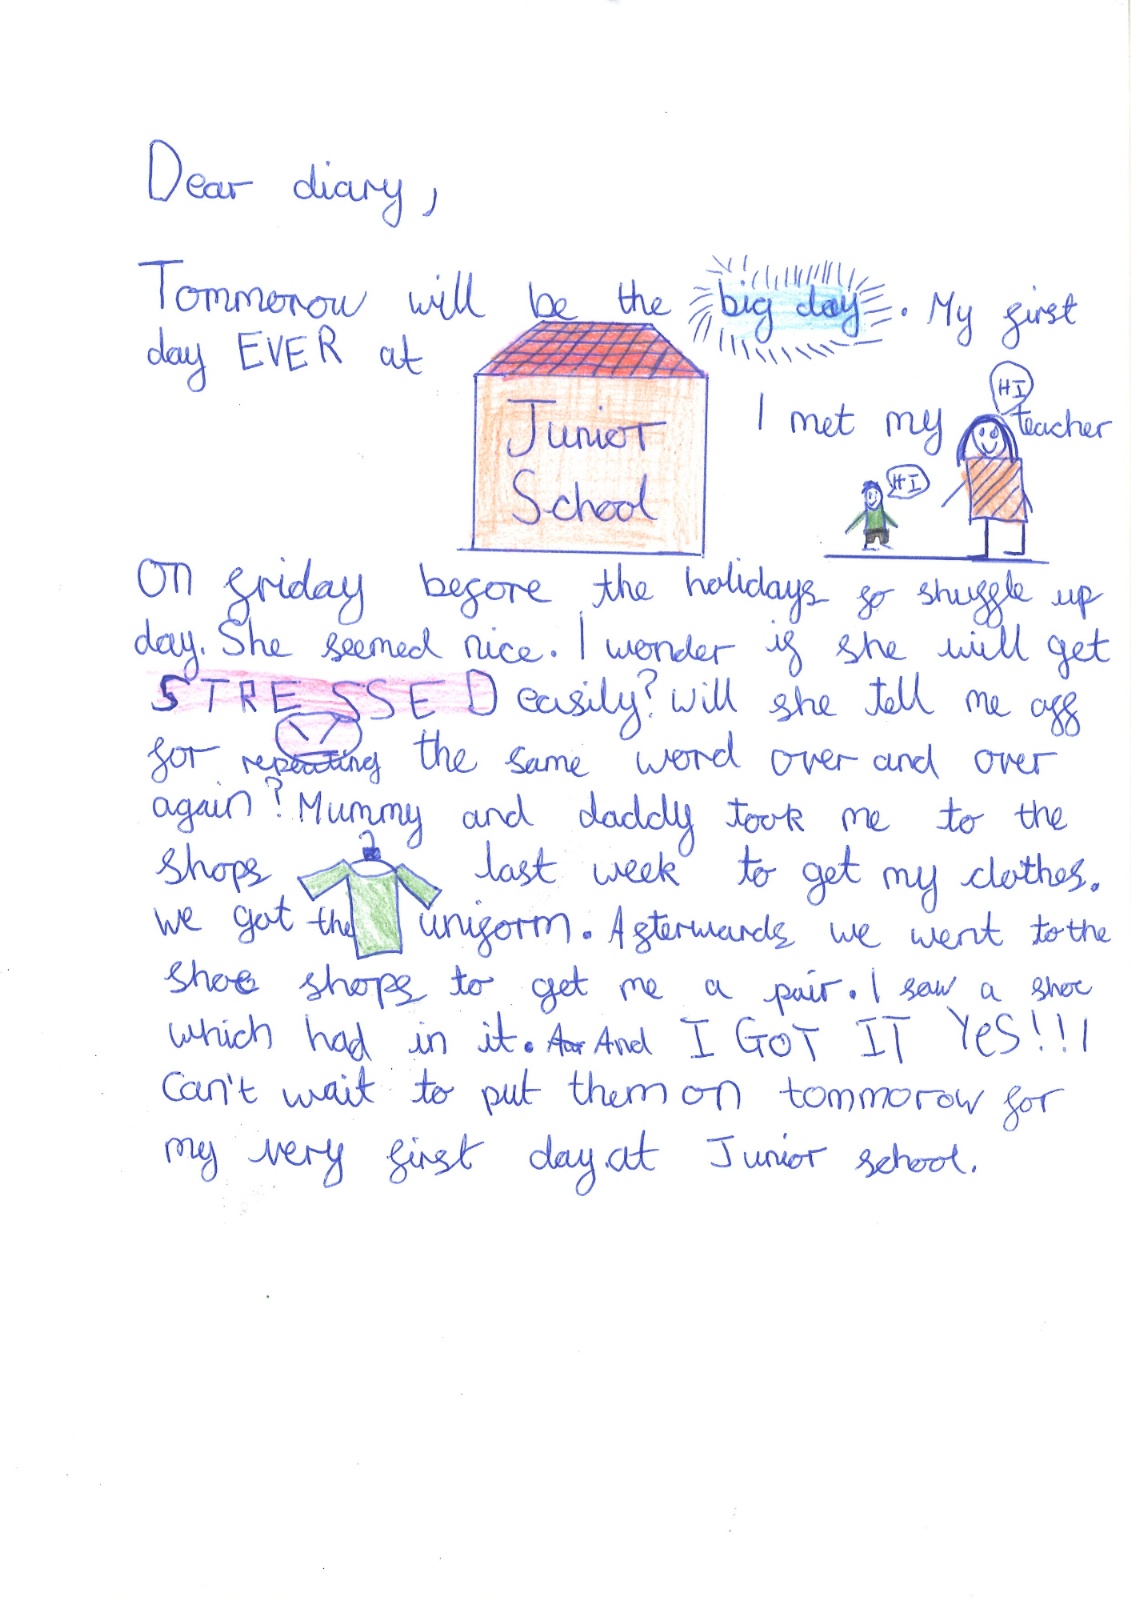 Dear diary,
Tommorow will be the big day. My first
day EVER at
Junior
School
HI
I met my teacher
HI
On friday before the holidays fo shuggle up
day. She seemed nice. I wonder if she will get
STRESSED easily? Will she tell me off
for repeating the same word over and over
again? Mummy and daddy took me to the
shops last week to get my clothes.
We got the unigorm. Afterwards we went to the
shoe shops to get me a pair. I saw a shoe
which had in it. And I GOT IT YeS!!! I
Can't wait to put them on tommorow for
my very first day.at Junior school.